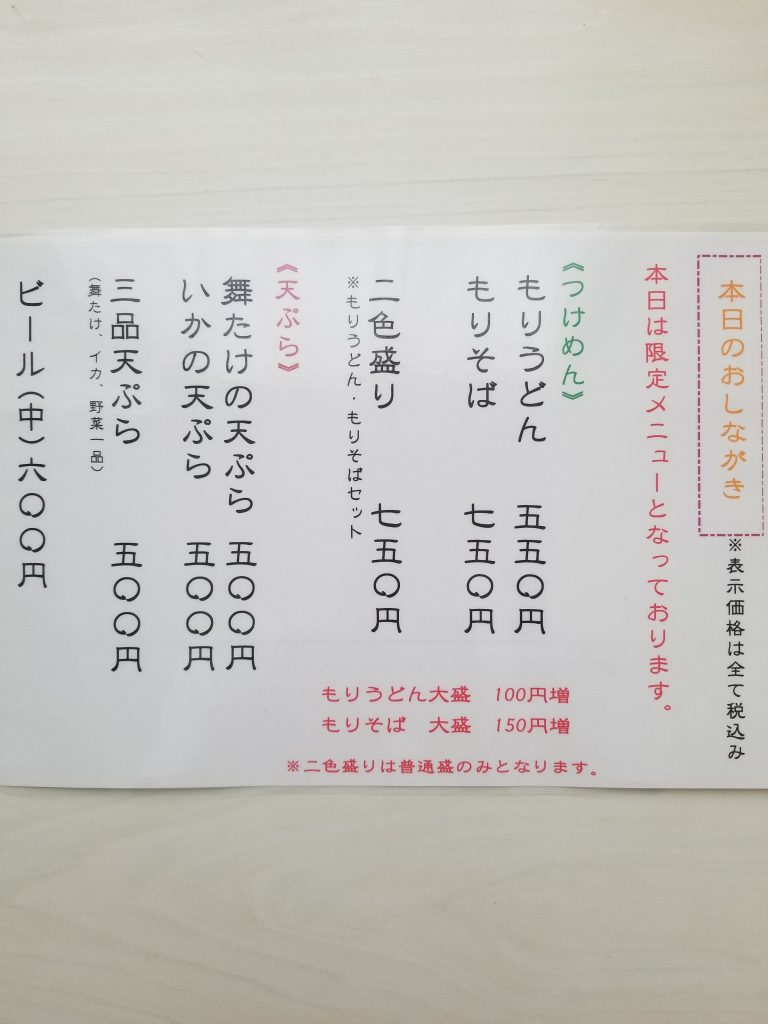 本日のおしながき
※表示価格は全て税込み
本日は限定メニューとなっております。
《つけめん》
もりうどん 五五〇円
もりそば 七五〇円
二色盛り 七五〇円
※もりうどん・もりそばセット
もりうどん大盛 100円増
もりそば 大盛 150円増
※二色盛りは普通盛のみとなります。
《天ぷら》
舞たけの天ぷら 五〇〇円
いかの天ぷら 五〇〇円
三品天ぷら 五〇〇円
(舞たけ、イカ、野菜一品)
ビール(中)六〇〇円